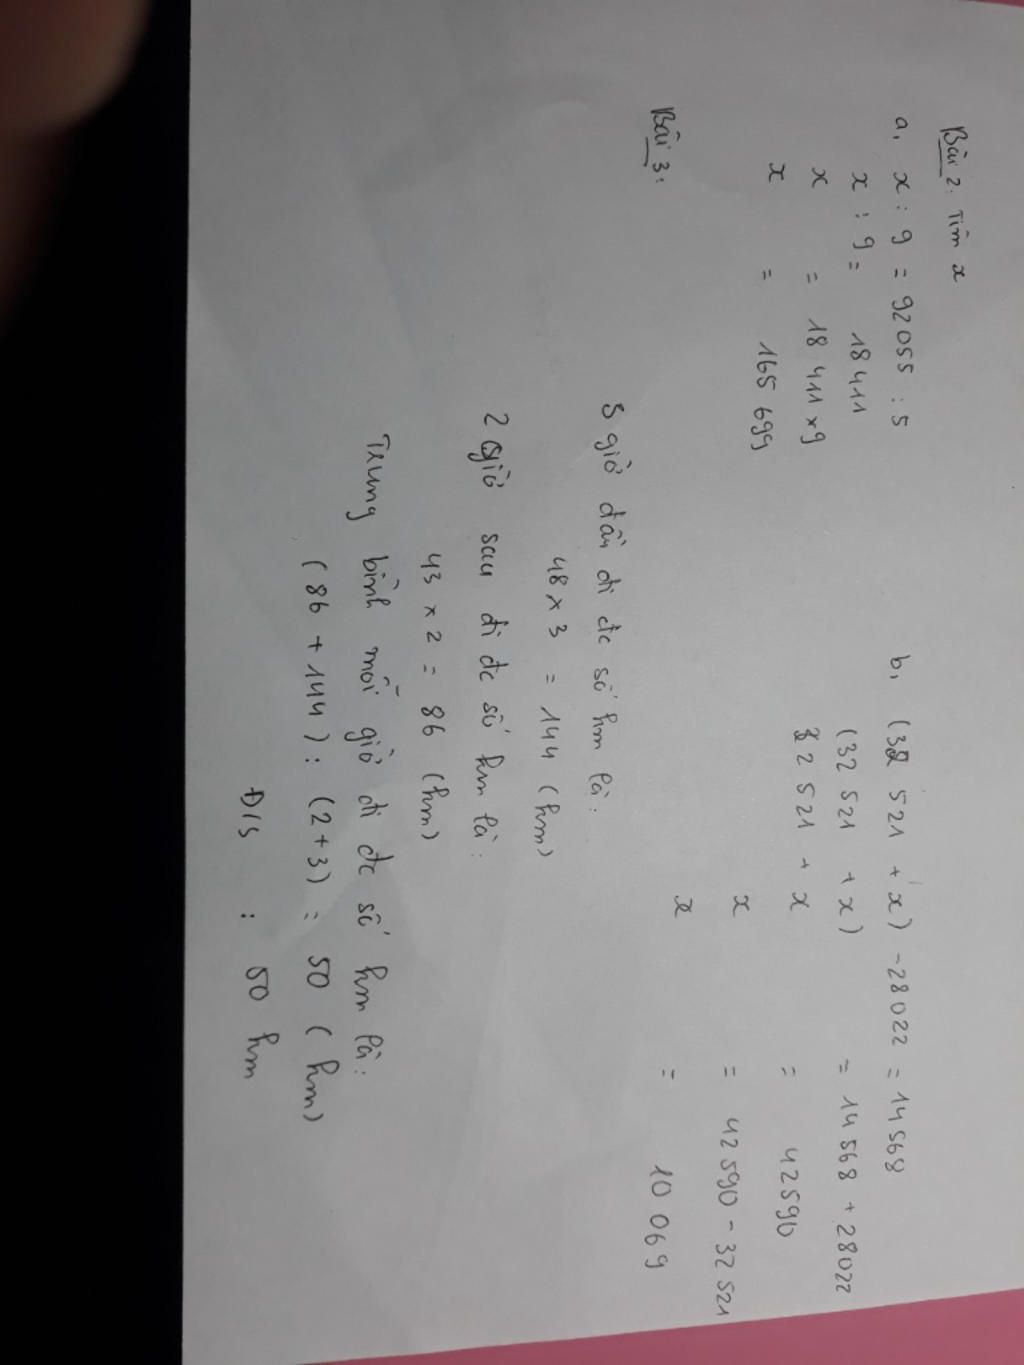 Bài 2: Tìm x
a, x : 9 = 92055 : 5
x : 9 = 18 411
x = 18 411 x 9
x = 165 699
b, (32 521 + x) - 28022 = 14568
(32 521 + x) = 14 568 + 28022
32 521 + x = 42590
x = 42 590 - 32 521
x = 10 069
Bài 3:
3 giờ đầu đi đc số km là:
48 x 3 = 144 (km)
2 giờ sau đi đc số km là:
43 x 2 = 86 (km)
Trung bình mỗi giờ đi đc số km là:
(86 + 144) : (2+3) = 50 (km)
Đ/s : 50 km